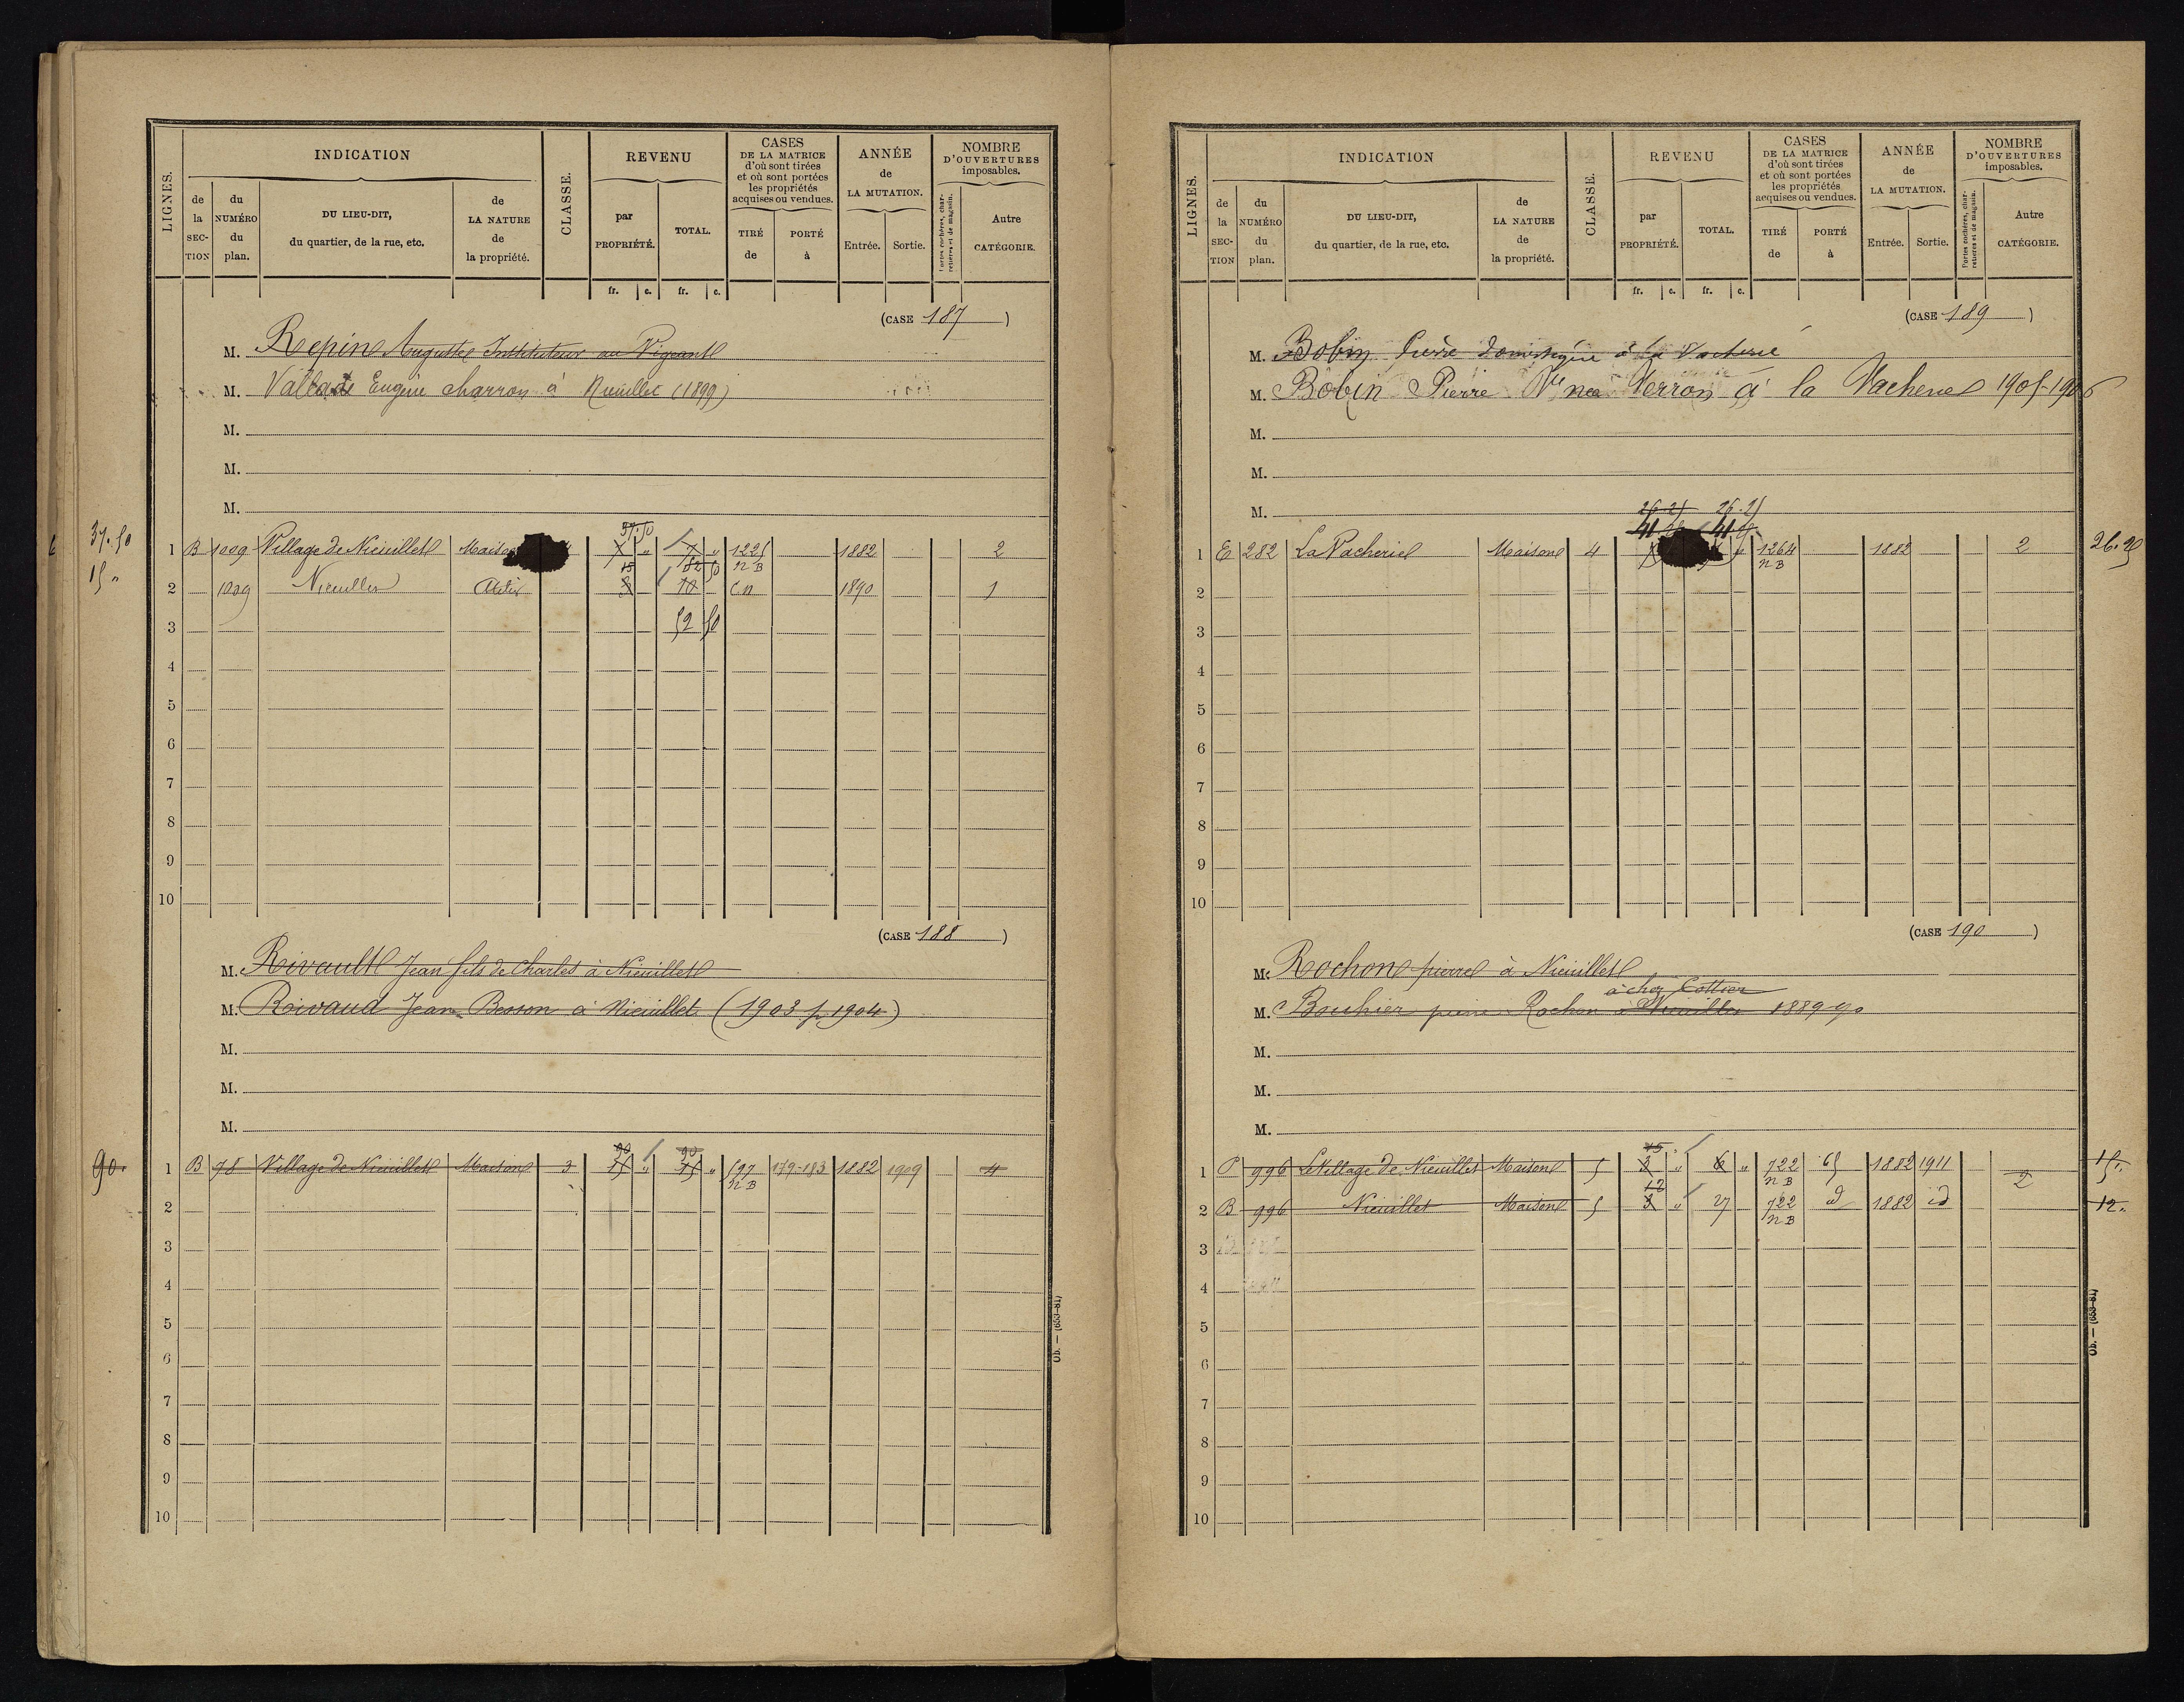 LIGNES.
INDICATION
de la SEC-TION
du NUMÉRO du plan.
DU LIEU-DIT, du quartier, de la rue, etc.
de LA NATURE de la propriété.
CLASSE.
REVENU
par PROPRIÉTÉ.
TOTAL.
CASES DE LA MATRICE d'où sont tirées et où sont portées les propriétés acquises ou vendues.
TIRÉ de
PORTÉ à
ANNÉE de LA MUTATION.
Entrée.
Sortie.
NOMBRE D'OUVERTURES imposables.
Portes cochères, charretières et de magasin.
Autre CATÉGORIE.
fr. c. fr. c.
(CASE 187)
M. Repin Auguste Instituteur au Vigeant
M. Vallade Eugène charron à Nieuillet (1899)
M.
M.
M.
37.50
37.50
1 B 1009 Village de Nieuillet Maison 7 " 7 " 1221 1882 2
15 "
15 52 50 n B
2 1009 Nieuillet Atelier 3 10 C n 1890 1
3 52 50
4
5
6
7
8
9
10
(CASE 188)
M. Rivault Jean fils de Charles à Nieuillet
M. Rivaud Jean Besson à Nieuillet (1903 p 1904)
M.
M.
M.
90 90
90. 1 B 78 Village de Nieuillet Maison 3 15 " 15 " 597 179-183 1882 1909 4
n B
2
3
4
5
6
7
8
9
10
Ob. — (653-81)
LIGNES.
INDICATION
de la SEC-TION
du NUMÉRO du plan.
DU LIEU-DIT, du quartier, de la rue, etc.
de LA NATURE de la propriété.
CLASSE.
REVENU
par PROPRIÉTÉ.
TOTAL.
CASES DE LA MATRICE d'où sont tirées et où sont portées les propriétés acquises ou vendues.
TIRÉ de
PORTÉ à
ANNÉE de LA MUTATION.
Entrée.
Sortie.
NOMBRE D'OUVERTURES imposables.
Portes cochères, charretières et de magasin.
Autre CATÉGORIE.
fr. c. fr. c.
(CASE 189)
M. Bobin Pierre domestique à la Vacherie
M. Bobin Pierre Vve née Verron à la Vacherie 1905-1906
M.
M.
M.
26.25 26.25
41.25 41.25
1 E 282 La Vacherie Maison 4 " 1264 1882 2 26.25
n B
2
3
4
5
6
7
8
9
10
(CASE 190)
M. Rochon pierre à Nieuillet
à chez Cottier
M. Bouhier pierre Rochon à Nieuillet 1889-90
M.
M.
M.
15
1 996 Le Village de Nieuillet Maison 5 3 " 6 " 722 65 1882 1911 2 15 "
12 n B
2 B 996 Nieuillet Maison 5 3 " 27 722 d 1882 id 12 "
n B
3
4
5
6
7
8
9
10
Ob. — (653-81)